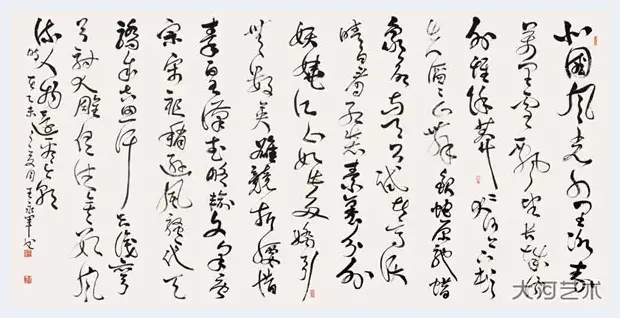 北国风光千里冰封
万里雪飘望长城内
外惟余莽莽大河上下顿
失滔滔山舞银蛇原驰蜡
象欲与天公试比高须
晴日看红装素裹分外
妖娆江山如此多娇引
无数英雄竞折腰惜
秦皇汉武略输文采唐
宗宋祖稍逊风骚一代天
骄成吉思汗只识弯
弓射大雕俱往矣数风
流人物还看今朝
时在乙未之夏月
大河艺术